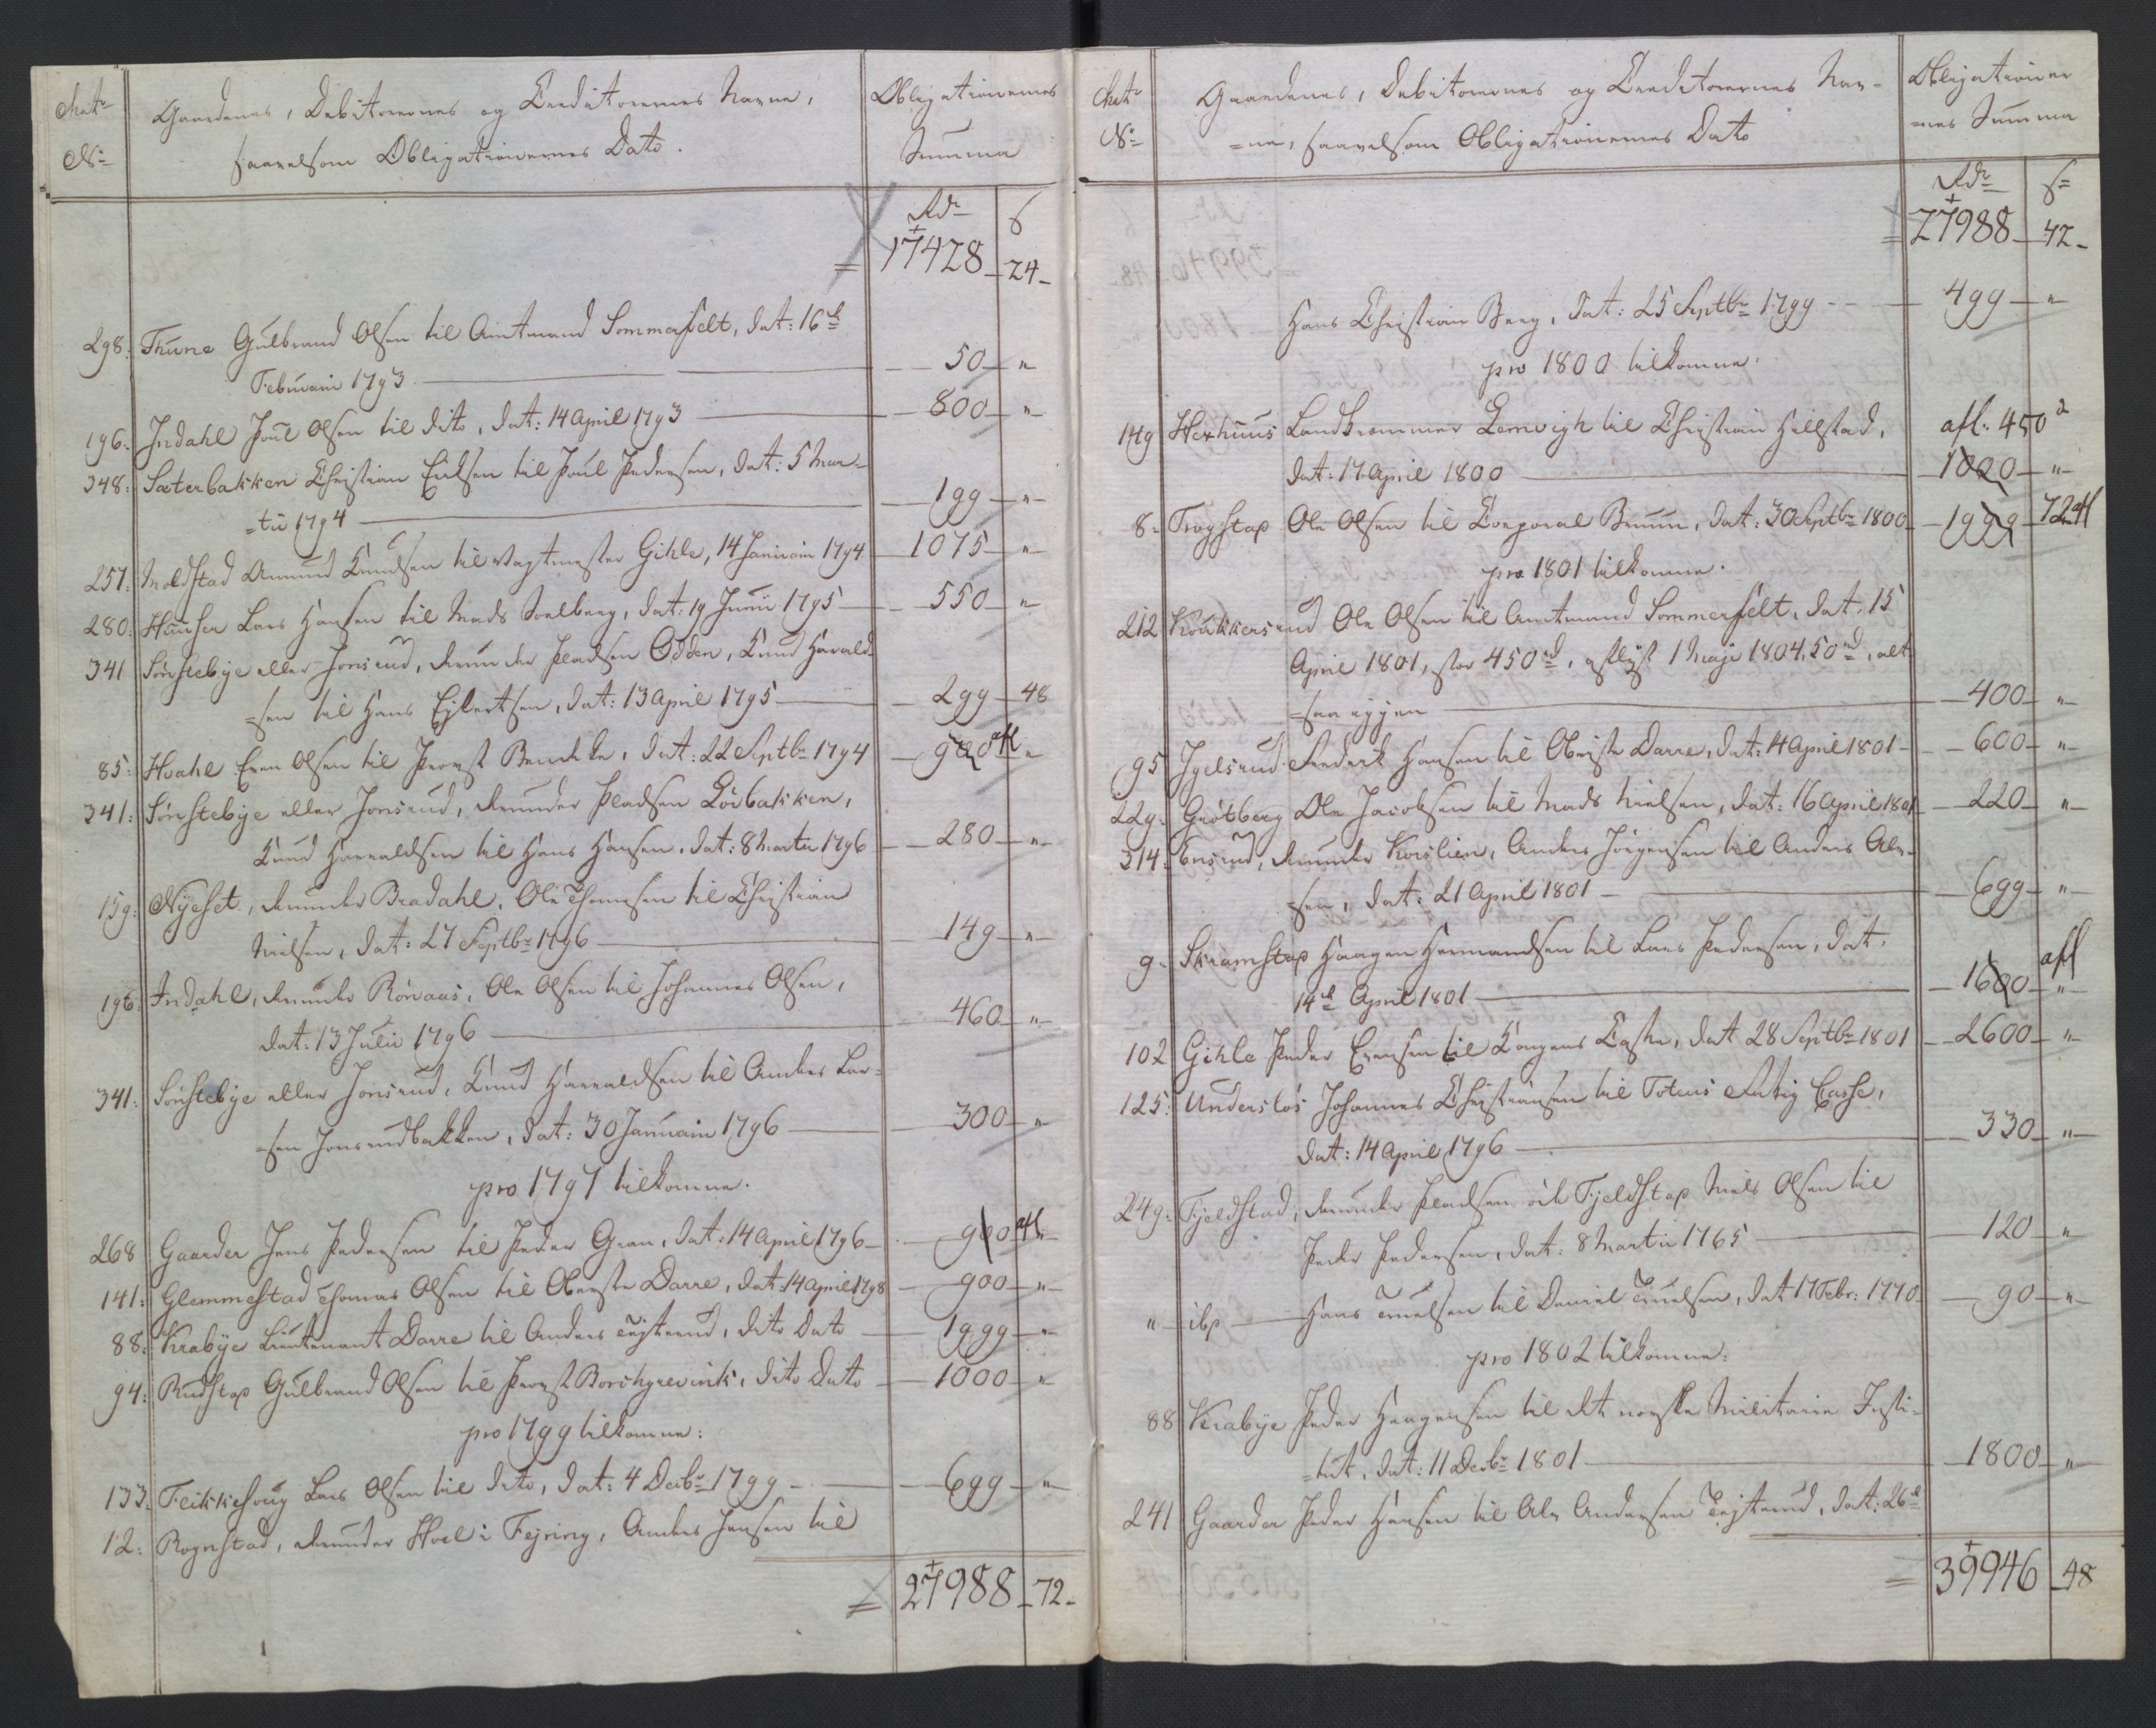 Matr
No
Gaardenes, Debitorernes og Creditorernes Navne,
saavelsom Obligationernes Dato.
Obligationernes
Summa
Rdr
s
17428 24
298. Thune Gulbrand Olsen til Amtmand Sommerfelt, dat: 16d
Februarii 1793 50 "
196. Indahl Poul Olsen til dito, dat: 14 April 1793 800 "
348: Sæterbakken Christian Eielsen til Poul Pedersen, dat: 5 Mar=
=tii 1794 199 "
257: Moldstad Amund Knudsen til Vagtmester Gihle, 14 Januarii 1794 1075 "
280: Haugen Lars Hansen til Mads Svelberg, dat: 19 Junii 1795 550 "
341 Sönstebye eller Jonsrud, derunder Pladsen Odden, Knud Harald=
=sen til Hans Eylertsen, dat: 13 April 1795 299 48
85: Hoahl Even Olsen til Provst Bendeke, dat: 22 Septbr 1794 900 afl "
341: Sönstebye eller Jonsrud, derunder Pladsen Löibakken,
Knud Harraldsen til Hans Hansen, dat: 8 Martii 1796 280 "
159: Nyeset, derunder Bradahl, Ole Thomesen til Christian
Nielsen, dat: 27 Septbr 1796 149 "
196: Indahl, derunder Rönaas, Ole Olsen til Johannes Olsen,
dat: 13 Julii 1796 460 "
341: Sönstebye eller Jonsrud, Knud Harraldsen til Anders Lar=
=sen Jonsrudbakken, dat: 30 Januarii 1796 300 "
pro 1797 tilkomne.
268 Gaarder Jens Pedersen til Peder Gran, dat: 14 April 1796 900 afl
141: Glemmestad Thomas Olsen til Oberste Darre, dat: 14 April 1798 900 "
88: Krabye Lieutenant Darre til Anders Töjterud, dito Dato 1999 "
94: Rudstap Gulbrand Olsen til Provst Borchgrevink, dito Dato 1000 "
pro 1799 tilkomne:
133. Feikkehoug Lars Olsen til dito, dat: 4 Decbr 1799 699 "
12: Rognstad, derunder Hoel i Fejring, Anders Jensen til
27988 72
Matr
No
Gaardenes, Debitorernes og Creditorernes Nav=
=ne, saavelsom Obligationernes Dato
Obligationer
=nes Summa
Rdr
s
27988 72
Hans Christian Berg, dat: 25 Septbr 1799 499 "
pro 1800 tilkomne:
149 Hexhuus Landkræmmer Lemvigh til Christian Hillestad, afl. 450
dat: 17 April 1800 1000 "
8. Trogstap Ole Olsen til Corporal Bruun, dat: 30 Septbr 1800 1999 72 afl
pro 1801 tilkomne.
212 Koukkersrud Ole Olsen til Amtmand Sommerfelt, dat. 15
April 1801, stor 450 rd, aflyst 1 Maji 1804, 50 rd, alt=
=saa igjen 400 "
95 Igelsrud Frederk Hansen til Obrist Darre, dat: 14 April 1801 600 "
229. Grötberg Ole Jacobsen til Mads Nielsen, dat: 16 April 1801 220 "
314: Ensrud, derunder Korslien, Anders Jörgensen til Anders Ole=
=sen, dat: 21 April 1801 699 "
9. Skramstap Haagen Hermandsen til Lars Pedersen, dat.
14d April 1801 1600 afl "
102 Gihle Peder Evensen til Kongens Casse, dat 28 Septbr 1801 2600 "
125: Underslös Johannes Christiansen til Totens Fattig Casse,
dat: 14 April 1796 330 "
249: Fjeldstad, derunder Pladsen öde Fjeldstap Niels Olsen til
Peder Pedersen, dat: 8 Martii 1765 120 "
" ibd Hans Truelsen til Daniel Truelsen, dat 17 Febr: 1770 90 "
pro 1802 tilkomne:
88 Krabye Peder Haagensen til det norske Militaire Insti=
=tut, dat: 11 Decbr 1801 1800 "
241 Gaarder Peder Hansen til Ole Andersen Töjterud, dat: 26d
39946 48